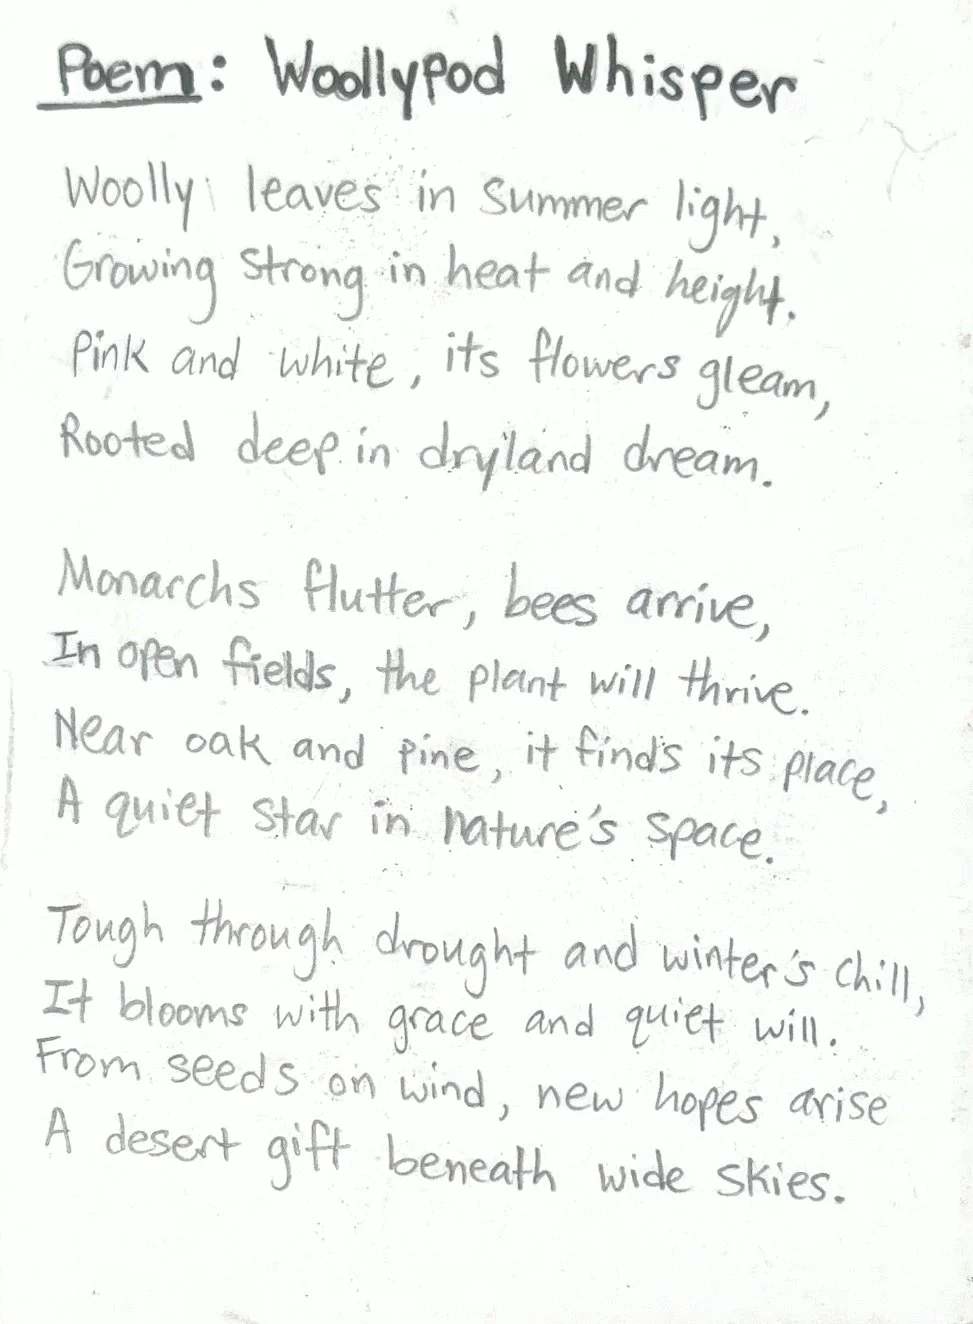 Poem: Woollypod Whisper
Woolly leaves in Summer light,
Growing strong in heat and height.
Pink and white, its flowers gleam,
Rooted deep in dryland dream.
Monarchs flutter, bees arrive,
In open fields, the plant will thrive.
Near oak and pine, it finds its place,
A quiet star in nature's space.
Tough through drought and winter's chill,
It blooms with grace and quiet will.
From seeds on wind, new hopes arise
A desert gift beneath wide skies.